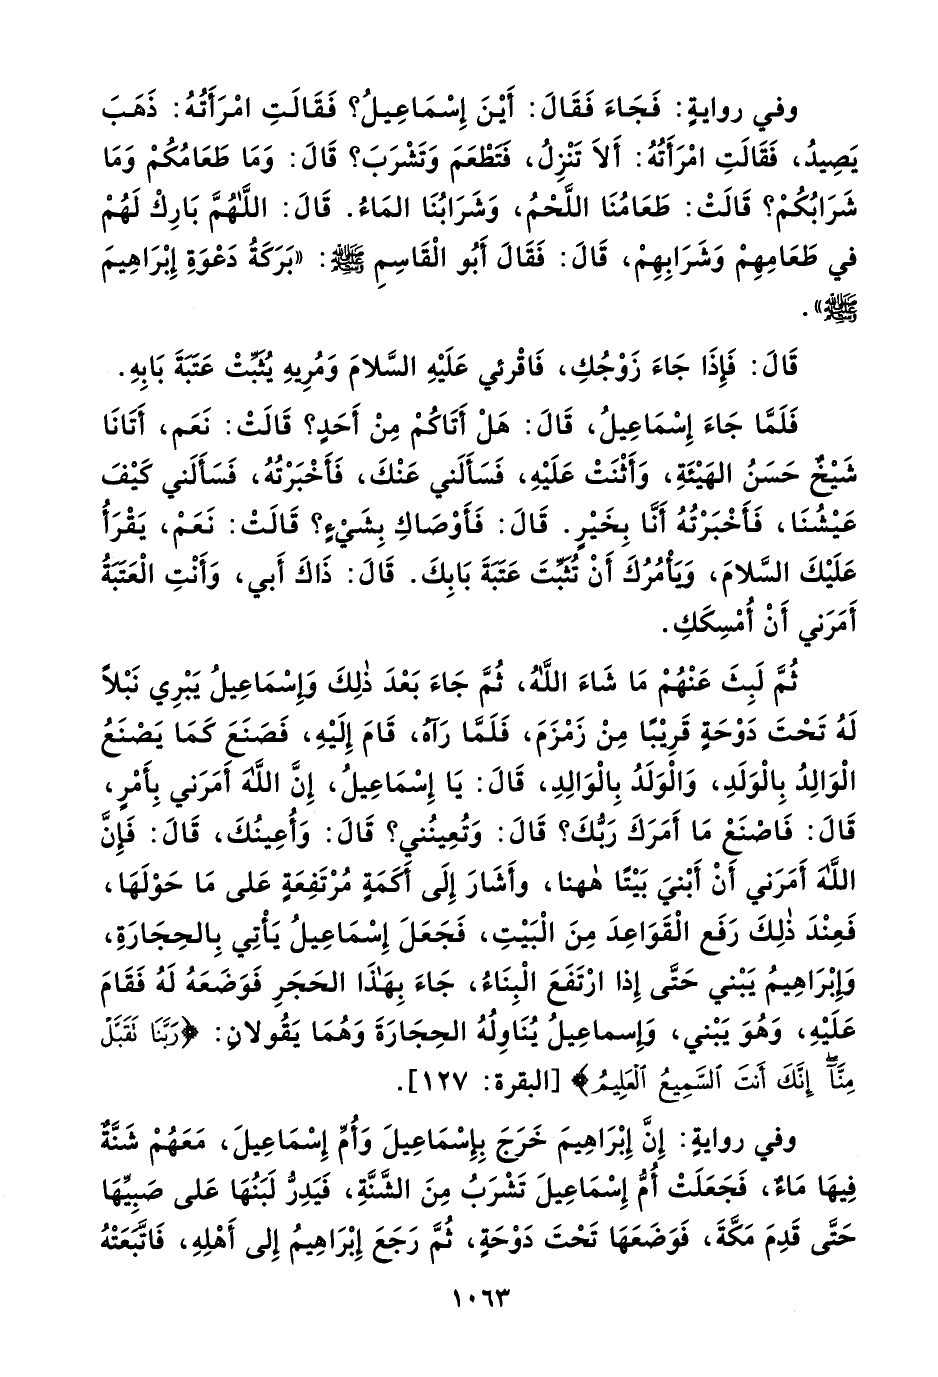 وفي روايةٍ: فَجَاءَ فَقَالَ: أَيْنَ إِسْمَاعِيلُ؟ فَقَالَتِ امْرَأَتُهُ: ذَهَبَ
يَصِيدُ، فَقَالَتِ امْرَأَتُهُ: أَلاَ تَنْزِلُ، فَتَطْعَمَ وَتَشْرَبَ؟ قَالَ: وَمَا طَعَامُكُمْ وَمَا
شَرَابُكُمْ؟ قَالَتْ: طَعَامُنَا اللَّحْمُ، وَشَرَابُنَا المَاءُ. قَالَ: اللَّهُمَّ بَارِكْ لَهُمْ
في طَعَامِهِمْ وَشَرَابِهِمْ، قَالَ: فَقَالَ أَبُو الْقَاسِمِ ﷺ: «بَرَكَةُ دَعْوَةِ إِبْرَاهِيمَ
ﷺ».
قَالَ: فَإِذَا جَاءَ زَوْجُكِ، فَاقْرئي عَلَيْهِ السَّلامَ وَمُرِيهِ يُثَبِّتْ عَتَبَةَ بَابِهِ.
فَلَمَّا جَاءَ إِسْمَاعِيلُ، قَالَ: هَلْ أَتَاكُمْ مِنْ أَحَدٍ؟ قَالَتْ: نَعَم، أَتَانَا
شَيْخٌ حَسَنُ الهَيْئَةِ، وَأَثْنَتْ عَلَيْهِ، فَسَأَلَني عَنْكَ، فَأَخْبَرْتُهُ، فَسَأَلَني كَيْفَ
عَيْشُنَا، فَأَخْبَرْتُهُ أَنَّا بِخَيْرٍ. قَالَ: فَأَوْصَاكِ بِشَيْءٍ؟ قَالَتْ: نَعَمْ، يَقْرَأُ
عَلَيْكَ السَّلامَ، وَيَأْمُرُكَ أَنْ تُثَبِّتَ عَتَبَةَ بَابِكَ. قَالَ: ذَاكَ أَبي، وَأَنْتِ الْعَتَبَةُ
أَمَرَني أَنْ أُمْسِكَكِ.
ثُمَّ لَبِثَ عَنْهُمْ مَا شَاءَ اللَّهُ، ثُمَّ جَاءَ بَعْدَ ذٰلِكَ وَإِسْمَاعِيلُ يَبْرِي نَبْلاً
لَهُ تَحْتَ دَوْحَةٍ قَرِيبًا مِنْ زَمْزَمَ، فَلَمَّا رَآهُ، قَامَ إِلَيْهِ، فَصَنَعَ كَمَا يَصْنَعُ
الْوَالِدُ بِالْوَلَدِ، وَالْوَلَدُ بِالْوَالِدِ، قَالَ: يَا إِسْمَاعِيلُ، إِنَّ اللَّهَ أَمَرَني بِأَمْرٍ،
قَالَ: فَاصْنَعْ مَا أَمَرَكَ رَبُّكَ؟ قَالَ: وَتُعِينُني؟ قَالَ: وَأُعِينُكَ، قَالَ: فَإِنَّ
اللَّهَ أَمَرَني أَنْ أَبْنيَ بَيْتًا هٰهنا، وأَشَارَ إِلَى أَكَمَةٍ مُرْتَفِعَةٍ عَلى مَا حَوْلَهَا،
فَعِنْدَ ذٰلِكَ رَفَعَ الْقَوَاعِدَ مِنَ الْبَيْتِ، فَجَعَلَ إِسْمَاعِيلُ يَأْتِي بِالحِجَارَةِ،
وَإِبْرَاهِيمُ يَبْني حَتَّى إِذا ارْتَفَعَ الْبِنَاءُ، جَاءَ بِهٰذَا الحَجَرِ فَوَضَعَهُ لَهُ فَقَامَ
عَلَيْهِ، وَهُوَ يَبْني، وَإِسماعِيلُ يُنَاوِلُهُ الحِجَارَةَ وَهُمَا يَقُولانِ: ﴿رَبَّنَا تَقَبَّلْ
مِنَّآ إِنَّكَ أَنتَ ٱلسَّمِيعُ ٱلْعَلِيمُ﴾ [البقرة: ١٢٧].
وفي روايةٍ: إِنَّ إِبْرَاهِيمَ خَرَجَ بِإِسْمَاعِيلَ وَأُمِّ إِسْمَاعِيلَ، مَعَهُمْ شَنَّةٌ
فِيهَا مَاءٌ، فَجَعَلَتْ أُمُّ إِسْمَاعِيلَ تَشْرَبُ مِنَ الشَّنَّةِ، فَيَدِرُّ لَبَنُهَا عَلى صَبِيِّهَا
حَتَّى قَدِمَ مَكَّةَ، فَوَضَعَهَا تَحْتَ دَوْحَةٍ، ثُمَّ رَجَعَ إِبْرَاهِيمُ إِلى أَهْلِهِ، فَاتَّبَعَتْهُ
١٠٦٣